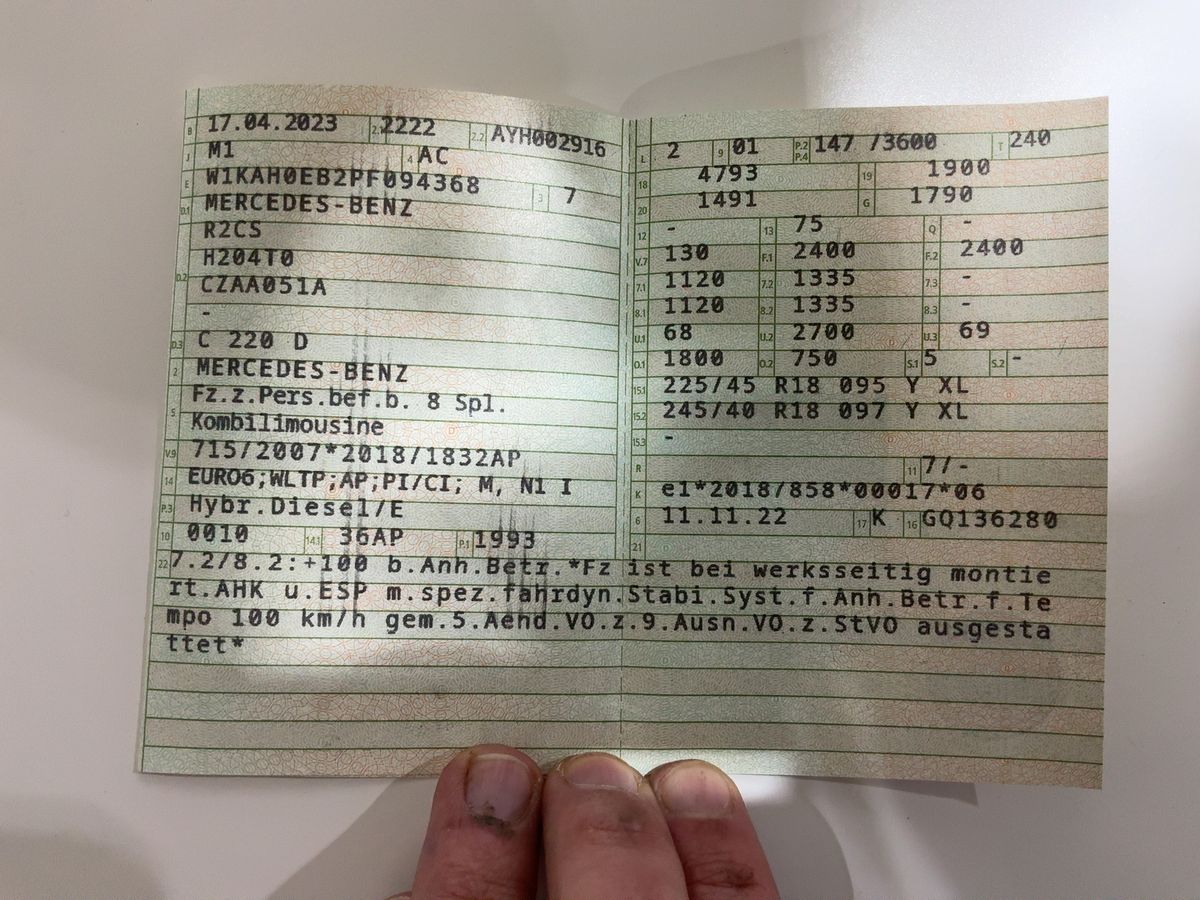 B 17.04.2023 2.1 2222 2.2 AYH002916
J M1 4 AC
E W1KAH0EB2PF094368 3 7
D.1 MERCEDES-BENZ
R2CS
D.2 H204T0
CZAA051A
-
D.3 C 220 D
2 MERCEDES-BENZ
5 Fz.z.Pers.bef.b. 8 Spl.
Kombilimousine
V.9 715/2007*2018/1832AP
14 EURO6;WLTP;AP;PI/CI; M, N1 I
P.3 Hybr.Diesel/E
10 0010 14.1 36AP P.1 1993
L 2 9 01 P.2 P.4 147 /3600 T 240
18 4793 19 1900
20 1491 G 1790
12 - 13 75 Q -
V.7 130 F.1 2400 F.2 2400
7.1 1120 7.2 1335 7.3 -
8.1 1120 8.2 1335 8.3 -
U.1 68 U.2 2700 U.3 69
O.1 1800 O.2 750 S.1 5 S.2 -
15.1 225/45 R18 095 Y XL
15.2 245/40 R18 097 Y XL
15.3 -
R 11 7/-
K e1*2018/858*00017*06
6 11.11.22 17 K 16 GQ136280
21
22 7.2/8.2:+100 b.Anh.Betr.*Fz ist bei werksseitig montie
rt.AHK u.ESP m.spez.fahrdyn.Stabi.Syst.f.Anh.Betr.f.Te
mpo 100 km/h gem.5.Aend.VO.z.9.Ausn.VO.z.StVO ausgesta
ttet*